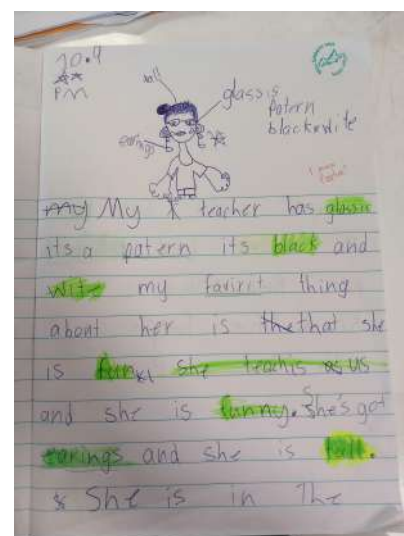 10.4
PM
tall
glassis
patern
black wite
earings
my My teacher has glassis
its a patern its black and
wite my favirit thing
about her is the that she
is fun she teachis us
and she is funny. She's got
earings and she is tall.
She is in the